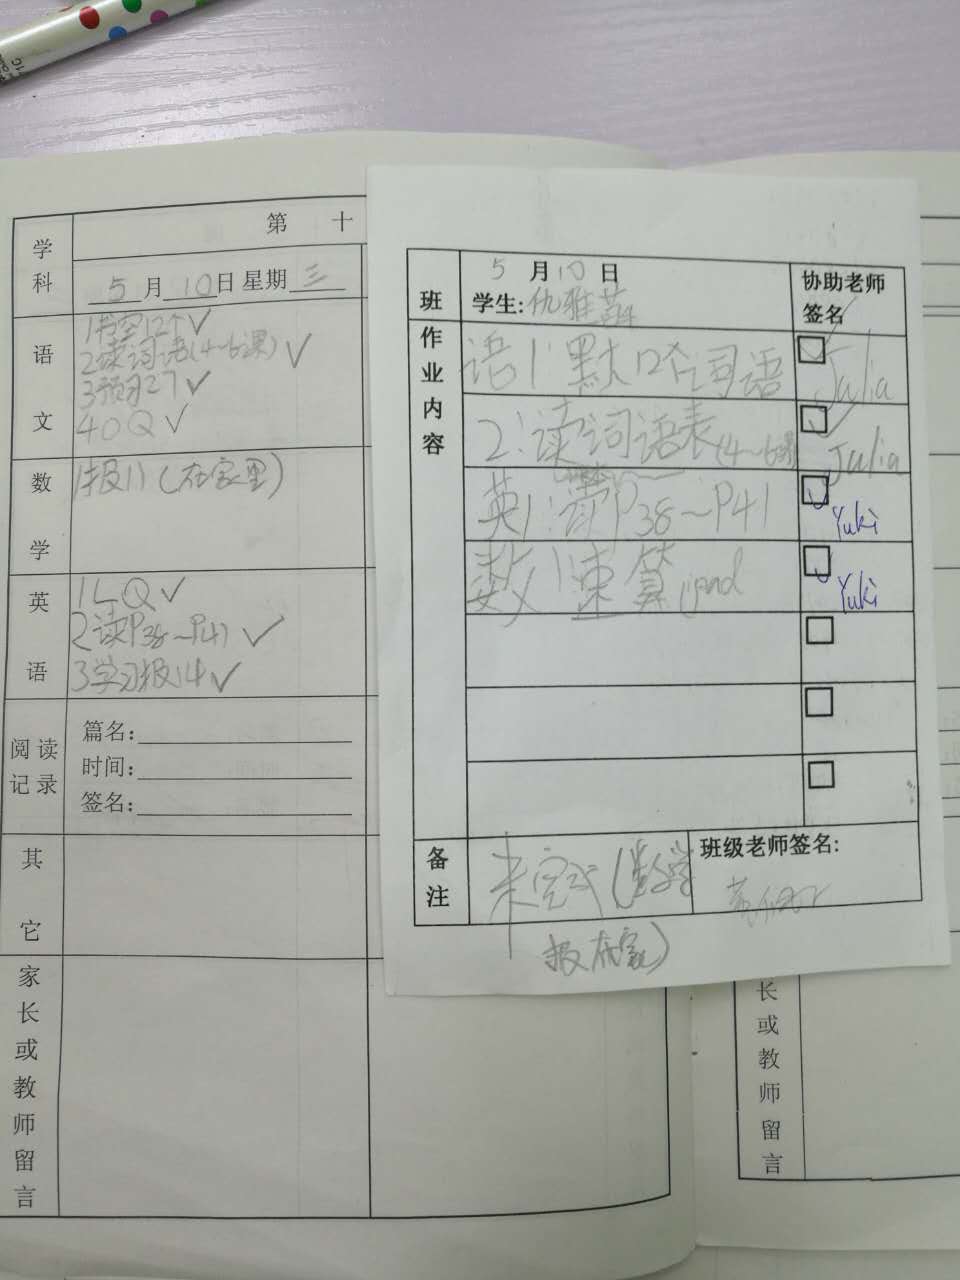 学科
第 十
5月10日 星期三
语文
1书空12个✓
2读词语(4~6课)✓
3预习27✓
4OQ✓
数学
1报11(在家里)
英语
1LQ✓
2读P38~P41✓
3学习报14✓
阅读记录
篇名:
时间:
签名:
其它
家长或教师留言
班
5月10日
学生:仇雅
协助老师签名
作业内容
语1:默12个词语
Julia
2:读词语表(4~6课)
Julia
英1:读P38~P41
Yuki
数1速算ipad
Yuki
备注
未完成(数学
报在家)
班级老师签名:
长或教师留言